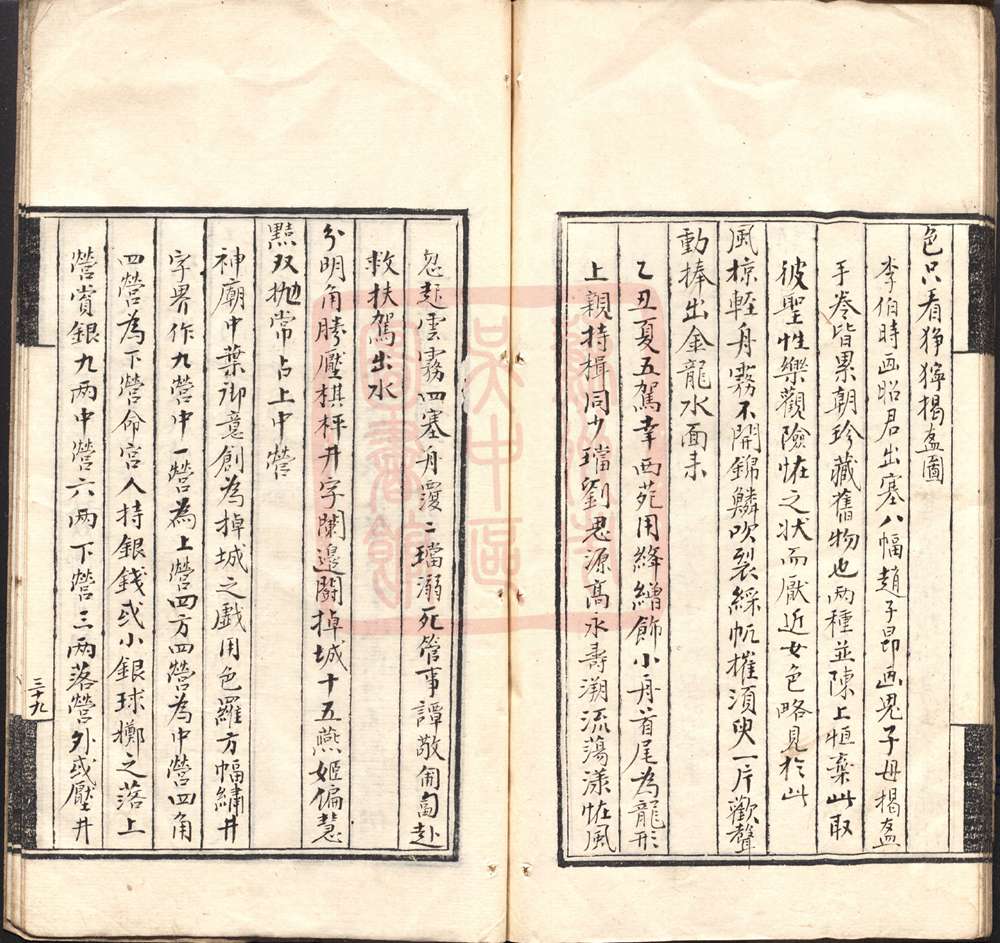 色只看猙獰揭盋圖
李伯時画昭君出塞八幅趙子昂画鬼子母揭盋
手卷皆累朝珍藏舊物也两種並陳上恒棄此取
彼聖性樂觀險怪之状而厭近女色略見於此
風掠輕舟霧不開錦鱗吹裂綵帆摧須臾一片歡聲
動捧出金龍水面来
乙丑夏五駕幸西苑用絳繒飾小舟首尾為龍形
上親持楫同少璫劉思源高永壽溯流蕩漾怪風
忽起雲霧四塞舟覆二璫溺死管事譚敬匍匐赴
救扶駕出水
分明角勝壓棋枰井字闌邊鬪掉城十五燕姬偏慧
黠双抛常占上中營
神廟中葉御意創為掉城之戲用色羅方幅繡井
字界作九營中一營為上營四方四營為中營四角
四營為下營命宮人持銀錢或小銀球擲之落上
營賞銀九两中營六两下營三两落營外或壓井
三十九